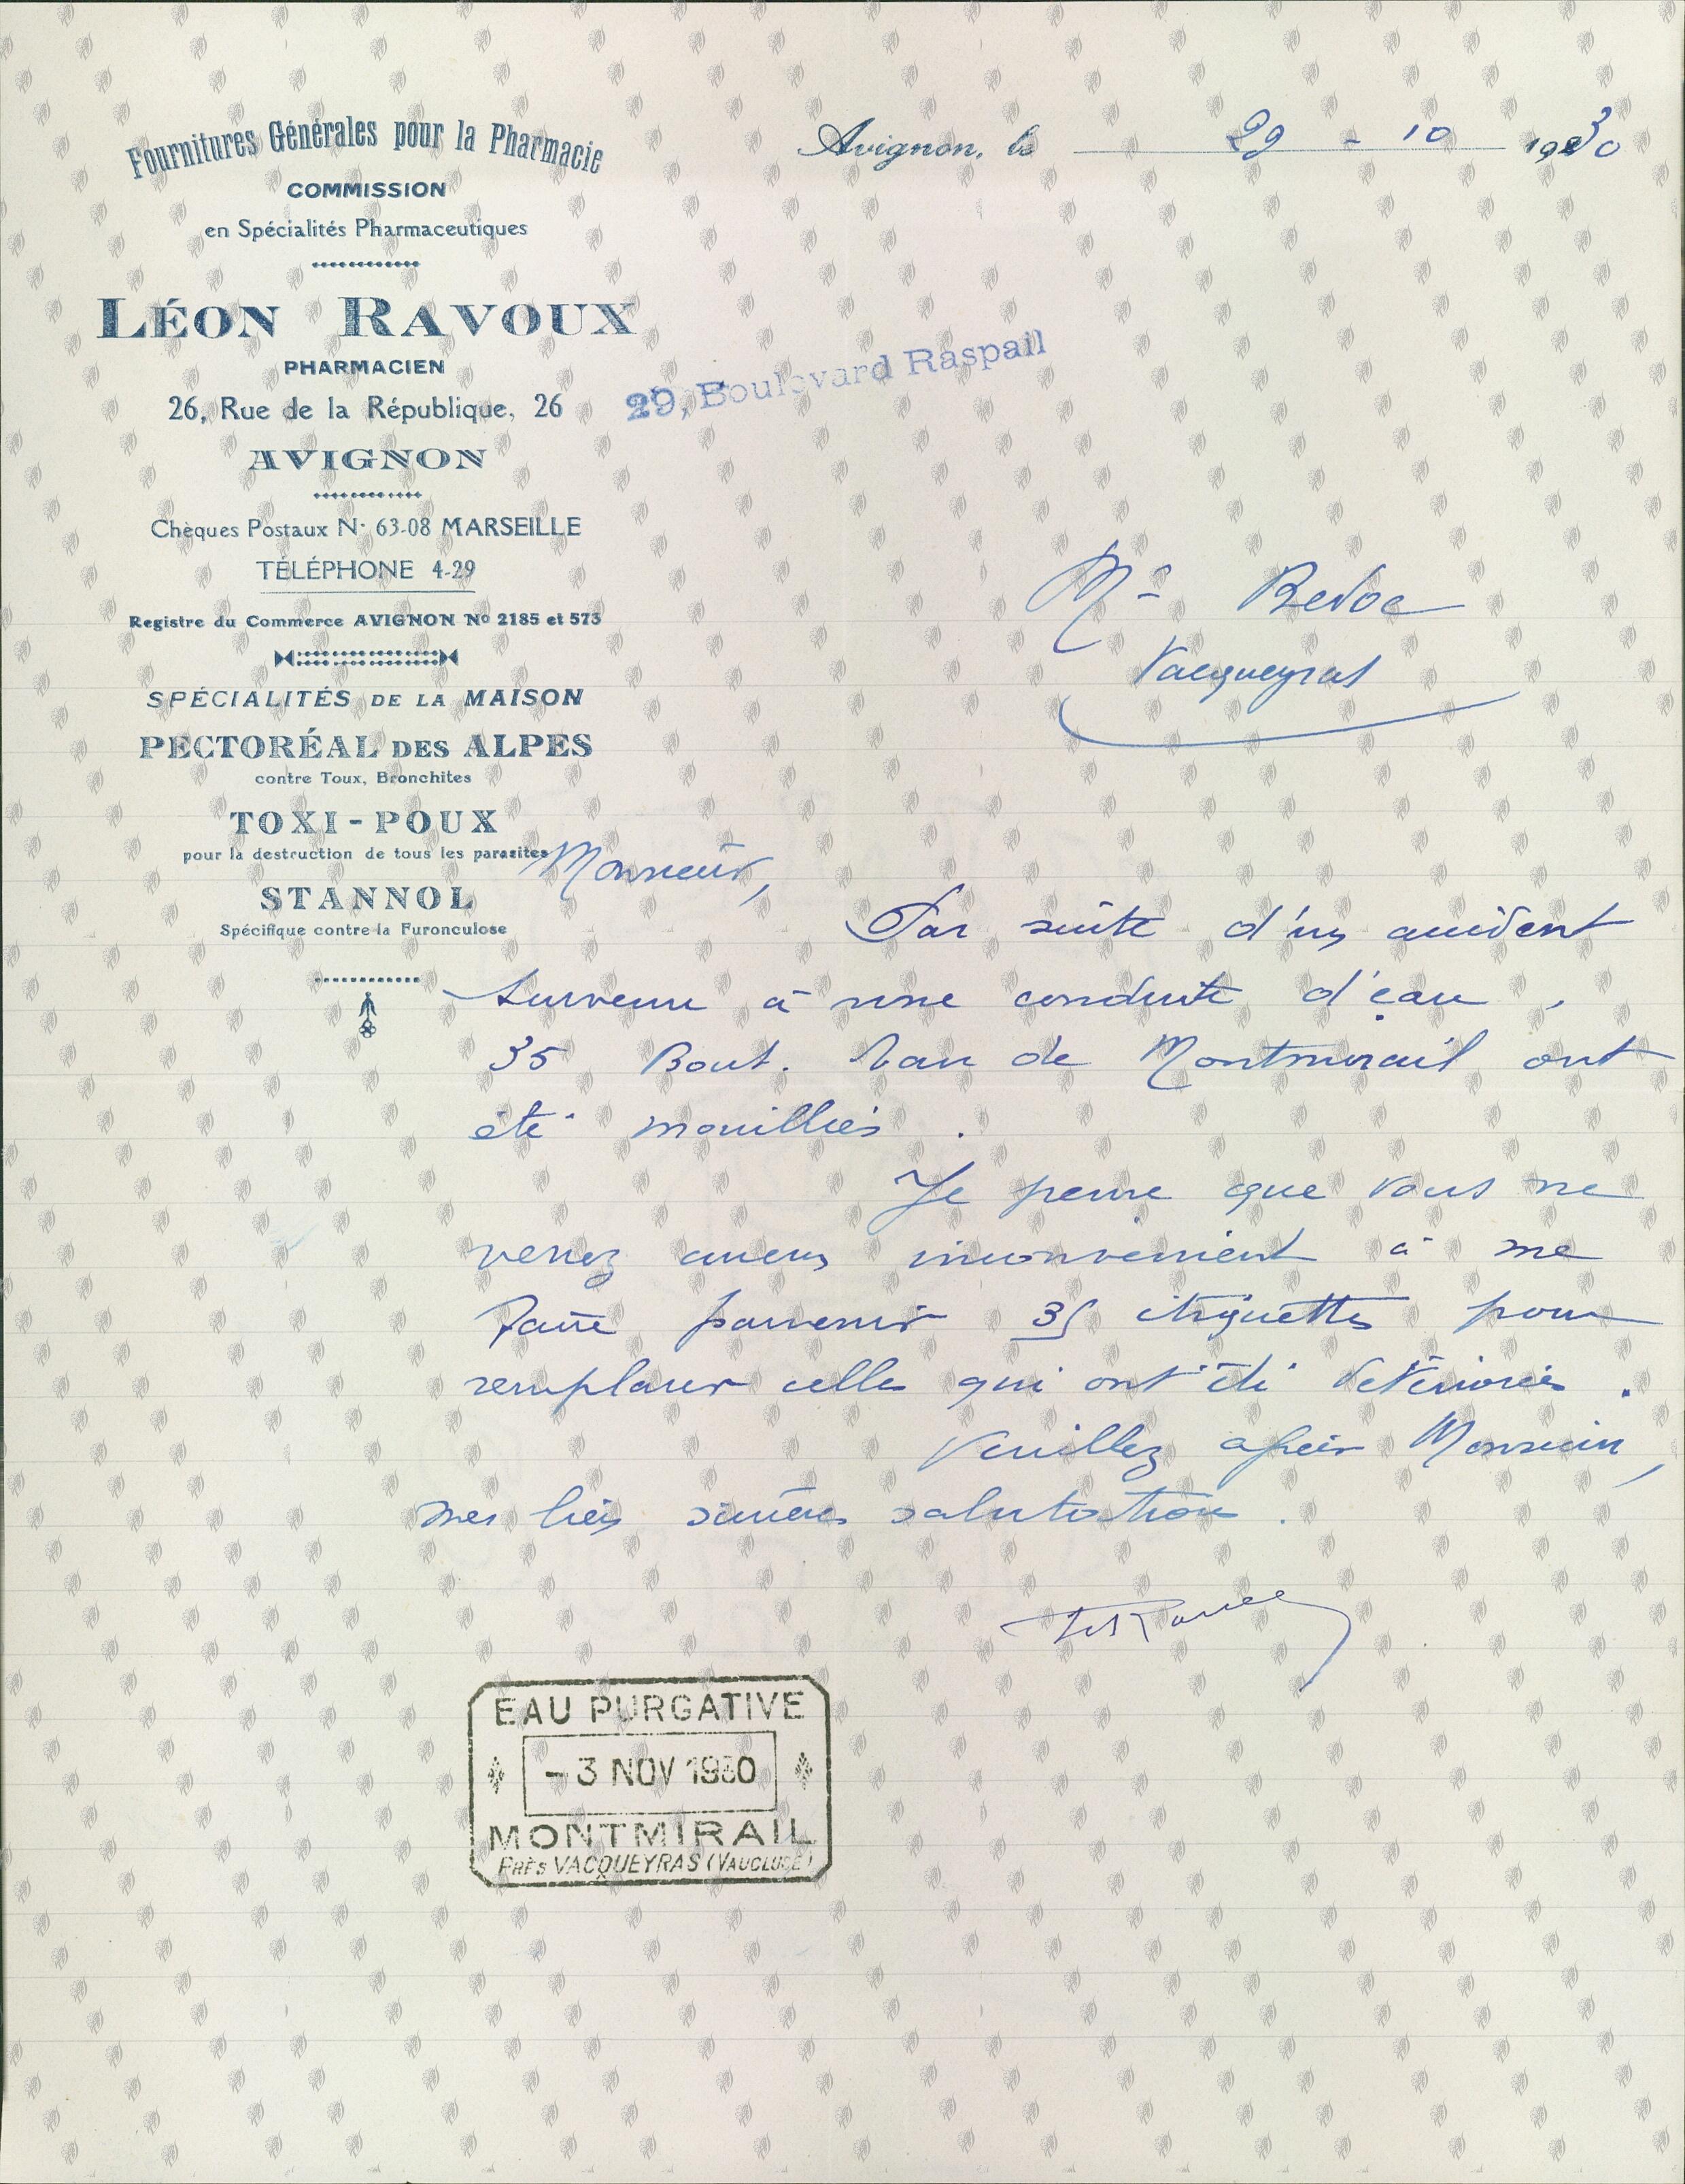 Fournitures Générales pour la Pharmacie
COMMISSION
en Spécialités Pharmaceutiques
LÉON RAVOUX
PHARMACIEN
26, Rue de la République, 26
AVIGNON
Chèques Postaux N° 63-08 MARSEILLE
TÉLÉPHONE 4-29
Registre du Commerce AVIGNON No 2185 et 573
SPÉCIALITÉS DE LA MAISON
PECTORÉAL DES ALPES
contre Toux, Bronchites
TOXI-POUX
pour la destruction de tous les parasites
STANNOL
Spécifique contre la Furonculose
Avignon, le 29 - 10 1930
29, Boulevard Raspail
Mr
Vacqueyras
Monsieur,
Par suite d'un accident
survenu à une conduite d'eau,
35 Bout. Eau de Montmirail ont
été mouillées.
Je pense que vous ne
verrez aucun inconvenient à me
faire parvenir 35 étiquettes pour
remplacer celles qui ont été détériorées.
Veuillez agréer Monsieur,
mes bien sincères salutations.
EAU PURGATIVE
- 3 NOV 1930
MONTMIRAIL
PRÈS VACQUEYRAS (VAUCLUSE)